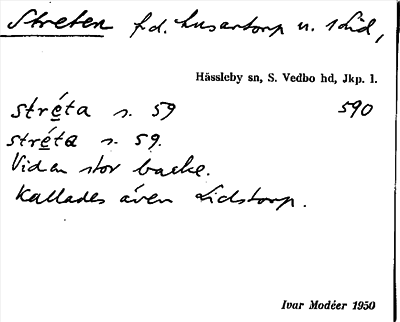 Streten f.d. husartorp u. Lid,
Hässleby sn, S. Vedbo hd, Jkp. l.
stréta s. 59 590
stréta s. 59.
Vid en stor backe.
Kallades även Lidstorp.
Ivar Modéer 1950